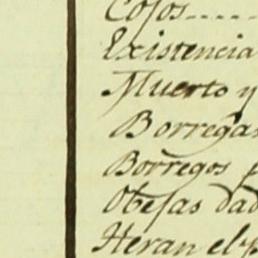 Cojos----
Existencia
Muerto y
Borregas
Borregos p
Obejas dad
Heran el p